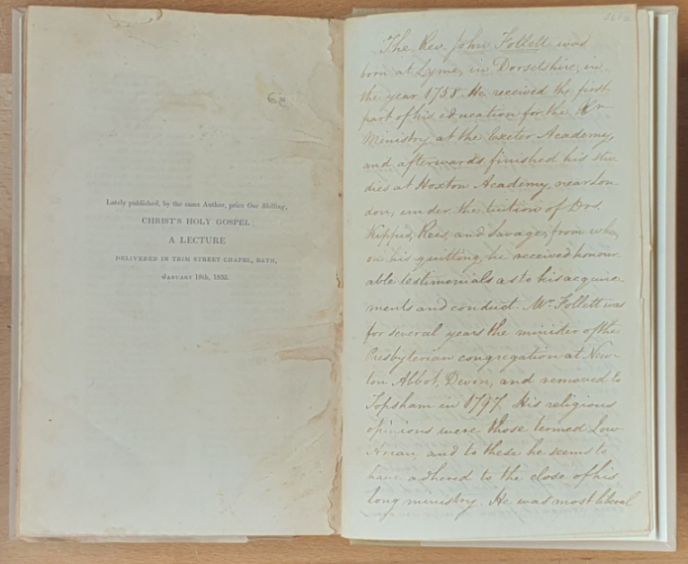 Lately published, by the same Author, price One Shilling,
CHRIST'S HOLY GOSPEL
A LECTURE
DELIVERED IN TRIM STREET CHAPEL, BATH,
JANUARY 18th, 1832.
The Rev. John Follett was
born at Lyme, in Dorsetshire, in
the year 1758. He received the first
part of his education for the
Ministry at the Exeter Academy,
and afterwards finished his stu
dies at Hoxton Academy, near Lon
don, under the tuition of Drs.
Kippis, Rees, and Savage, from
on his quitting, he received honour
able testimonials as to his acquire
ments and conduct. Mr. Follett was
for several years the minister of the
Presbyterian congregation at New-
ton Abbot, Devon, and removed to
Topsham in 1797. His religious
opinions were those termed Low
Arian, and to these he seems to
have adhered to the close of his
long ministry. He was most liberal